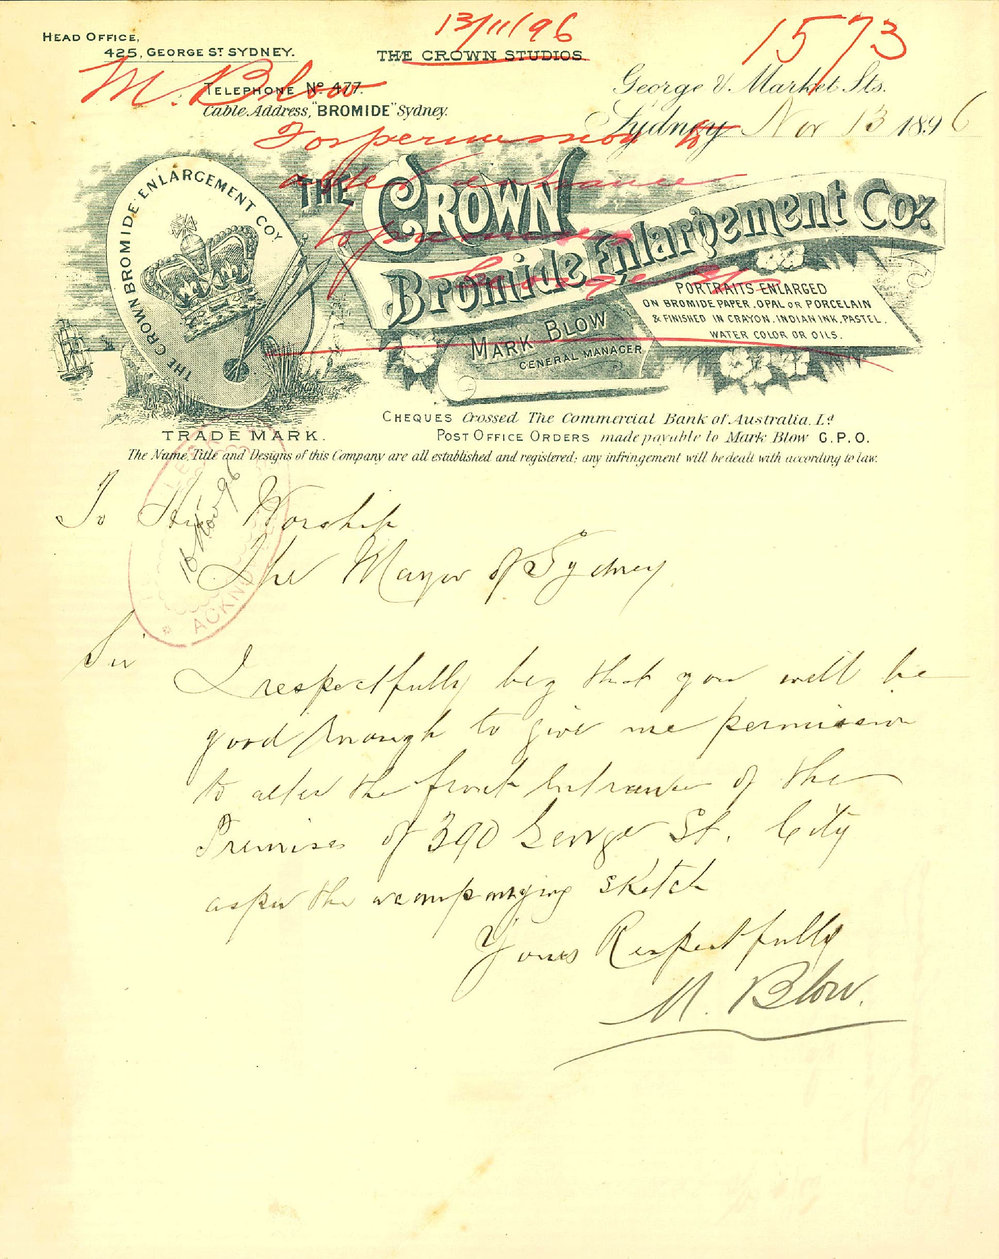 13/11/96
1573
HEAD OFFICE,
425, GEORGE ST SYDNEY.
THE CROWN STUDIOS.
M. Blow
TELEPHONE No 477.
Cable Address, "BROMIDE" Sydney.
George & Market Sts.
Sydney Nov 13 1896
For permission to
alter entrance
to premises
George St
THE CROWN BROMIDE ENLARGEMENT COY
THE CROWN
Bromide Enlargement Coy.
PORTRAITS ENLARGED
ON BROMIDE PAPER, OPAL OR PORCELAIN
& FINISHED IN CRAYON, INDIAN INK, PASTEL,
WATER COLOR OR OILS.
MARK BLOW
GENERAL MANAGER
TRADE MARK.
CHEQUES Crossed The Commercial Bank of Australia. Ld
POST OFFICE ORDERS made payable to Mark Blow G.P.O.
The Name, Title and Designs of this Company are all established and registered; any infringement will be dealt with according to law.
16 Nov 96
To His Worship
The Mayor of Sydney
Sir
I respectfully beg that you will be
good enough to give me permission
to alter the front entrance of the
Premises of 390 George St. City
as per the accompanying sketch
Yours Respectfully
M. Blow.